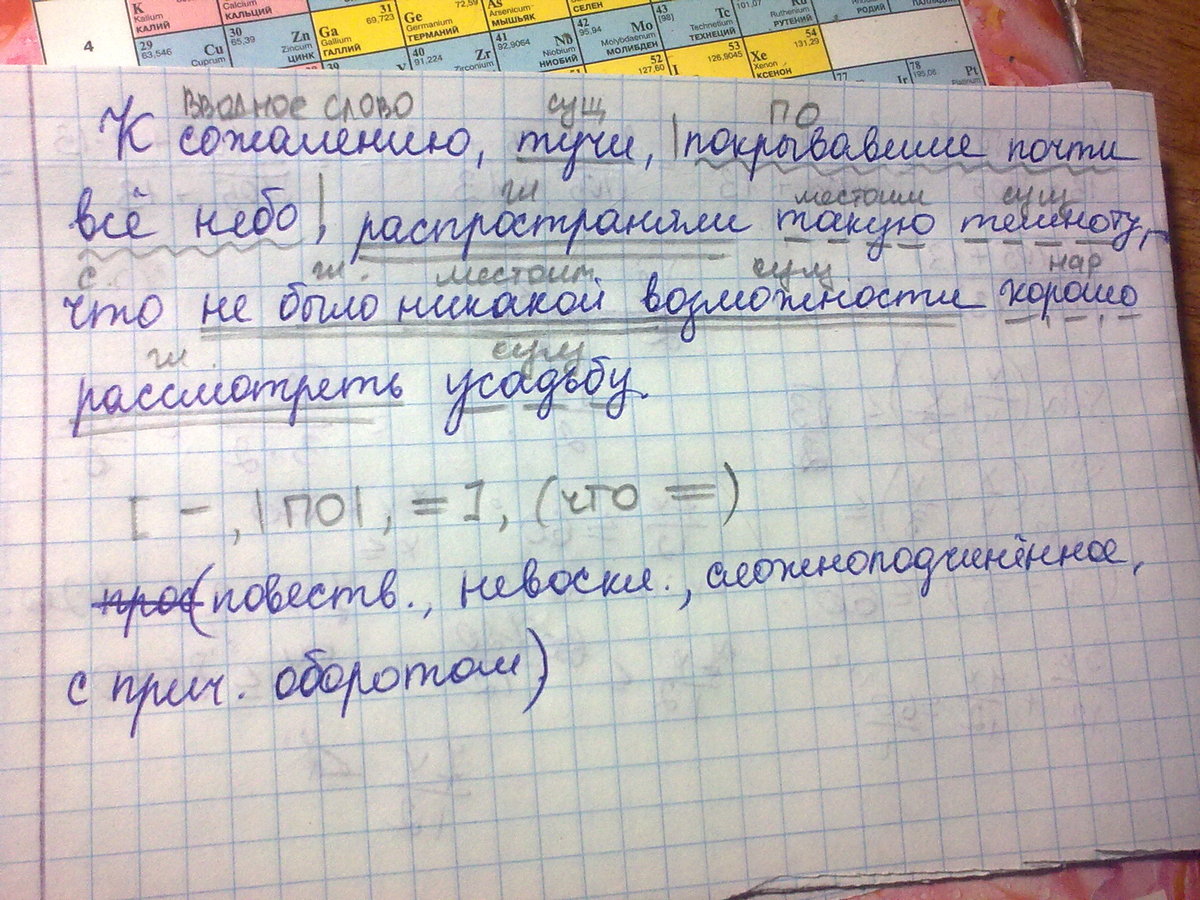 K Kalium КАЛИЙ
Calcium КАЛЬЦИЙ
31 69,723 Ga Gallium ГАЛЛИЙ
72,59 Ge Germanium ГЕРМАНИЙ
As Arsenicum МЫШЬЯК
СЕЛЕН
101,07 Ru Ruthenium РУТЕНИЙ
РОДИЙ
4
29 63,546 Cu Cuprum
30 65,39 Zn Zincum ЦИНК
40 91,224 Zr Zirconium
41 92,9064 Nb Niobium НИОБИЙ
42 95,94 Mo Molybdaenum МОЛИБДЕН
43 [98] Tc Technetium ТЕХНЕЦИЙ
52 127,60
53 126,9045 I
54 131,29 Xe Xenon КСЕНОН
77 Ir
78 195,08 Pt Platinum
вводное слово сущ ПО
К сожалению, тучи, |покрывавшие почти
гл местоим сущ
всё небо|, распространяли такую темноту,
с. гл. местоим сущ нар
что не было никакой возможности хорошо
гл сущ
рассмотреть усадьбу.
[ – , |ПО| , = ], (что =)
прос (повеств., невоскл., сложноподчинённое,
с прич. оборотом)